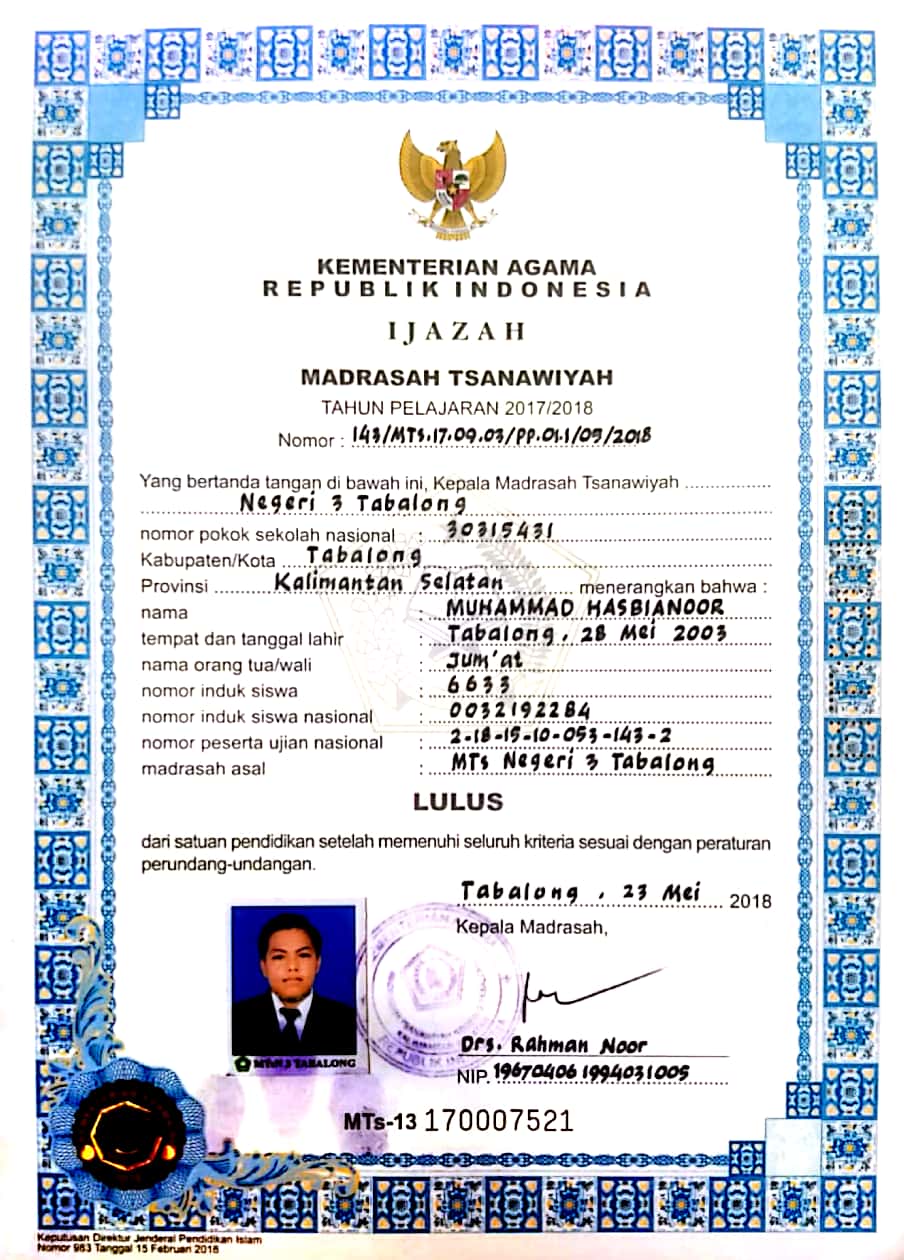 KEMENTERIAN AGAMA
REPUBLIK INDONESIA
IJAZAH
MADRASAH TSANAWIYAH
TAHUN PELAJARAN 2017/2018
Nomor : 143/MTS.17.09.03/PP.01.1/05/2018
Yang bertanda tangan di bawah ini, Kepala Madrasah Tsanawiyah
Negeri 3 Tabalong
nomor pokok sekolah nasional : 30315431
Kabupaten/Kota Tabalong
Provinsi Kalimantan Selatan menerangkan bahwa :
nama : MUHAMMAD HASBIANOOR
tempat dan tanggal lahir : Tabalong, 28 Mei 2003
nama orang tua/wali : Jum'at
nomor induk siswa : 6633
nomor induk siswa nasional : 0032192284
nomor peserta ujian nasional : 2-18-15-10-053-143-2
madrasah asal : MTs Negeri 3 Tabalong
LULUS
dari satuan pendidikan setelah memenuhi seluruh kriteria sesuai dengan peraturan
perundang-undangan.
Tabalong, 23 Mei 2018
Kepala Madrasah,
Drs. Rahman Noor
NIP. 19670406 1994031005
MTsN 3 TABALONG
MTs-13 170007521
Keputusan Direktur Jenderal Pendidikan Islam
Nomor 983 Tanggal 15 Februari 2018